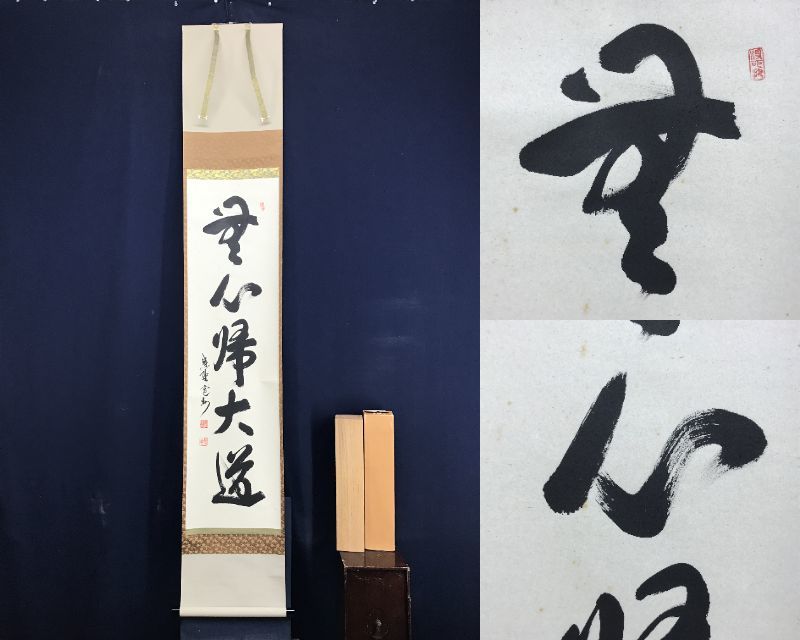 無心帰大道